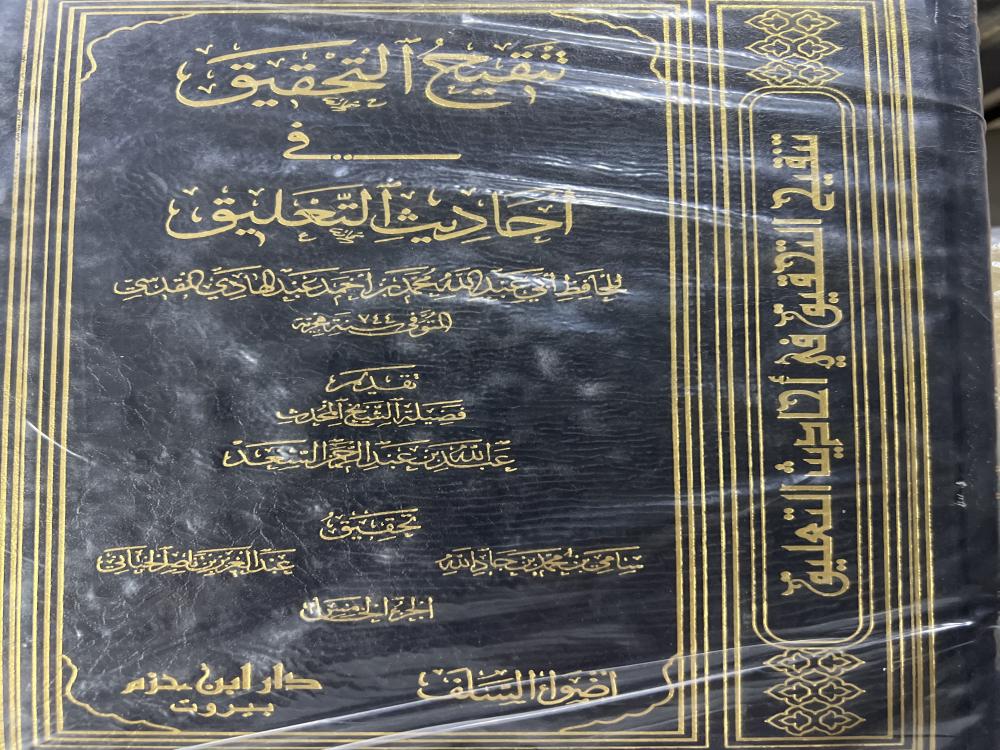 تنقيح التحقيق
في
أحاديث التعليق
للحافظ أبي عبد الله محمد بن أحمد عبد الهادي المقدسي
المتوفى سنة ٧٤٤ هجرية
تقديم
فضيلة الشيخ المحدث
عبد الله بن عبد الرحمن السعد
تحقيق
سامي بن محمد بن جاد الله
عبد العزيز بن ناصر الخباني
الجزء الخامس
أضواء السلف
دار ابن حزم
بيروت
تنقيح التحقيق في أحاديث التعليق